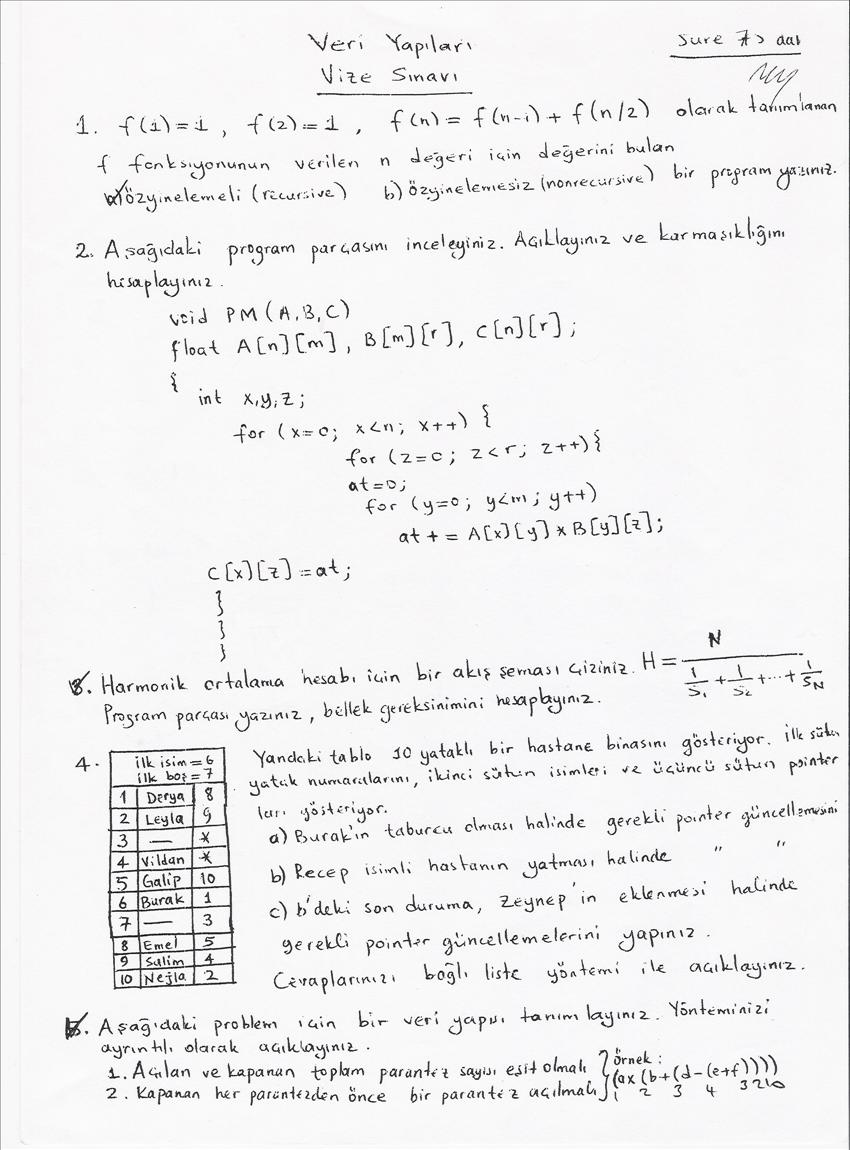 Veri Yapıları
Vize Sınavı
Sure 75
1. f(1)=1, f(2)=1, f(n)=f(n-1)+f(n/2) olarak tanımlanan
f fonksiyonunun verilen n değeri için değerini bulan
a) özyinelemeli (recursive) b) özyinelemesiz (nonrecursive) bir program yazınız.
2. Aşağıdaki program parçasını inceleyiniz. Açıklayınız ve karmaşıklığını
hisaplayınız.
void PM(A,B,C)
float A[n][m], B[m][r], C[n][r];
{
int x,y,z;
for (x=0; x<n; x++) {
for (z=0; z<r; z++){
at=0;
for (y=0; y<m; y++)
at += A[x][y]*B[y][z];
C[x][z]=at;
}
}
}
3. Harmonik ortalama hesabı için bir akış şeması çiziniz. H = N / (1/S1 + 1/S2 + ... + 1/SN)
Program parçası yazınız, bellek gereksinimini hesaplayınız.
4. Yandaki tablo 10 yataklı bir hastane binasını gösteriyor. İlk sütun
yatak numaralarını, ikinci sütun isimleri ve üçüncü sütun pointer
ları gösteriyor.
ilk isim=6
ilk boş=7
1 Derya 8
2 Leyla 9
3 — *
4 Vildan *
5 Galip 10
6 Burak 1
7 — 3
8 Emel 5
9 Salim 4
10 Nejla 2
a) Burak'ın taburcu olması halinde gerekli pointer güncellemesini
b) Recep isimli hastanın yatması halinde " "
c) b'deki son duruma, Zeynep'in eklenmesi halinde
gerekli pointer güncellemelerini yapınız.
Cevaplarınızı bağlı liste yöntemi ile açıklayınız.
5. Aşağıdaki problem için bir veri yapısı tanımlayınız. Yönteminizi
ayrıntılı olarak açıklayınız.
1. Açılan ve kapanan toplam parantez sayısı eşit olmalı
2. Kapanan her parantezden önce bir parantez açılmalı
örnek:
(ax(b+(d-(e+f))))
1 2 3 4 3210